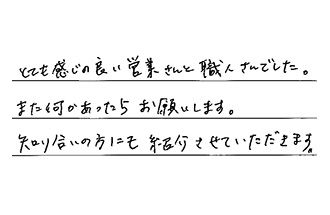 とても感じの良い営業さんと職人さんでした。
また何かあったら お願いします。
知り合いの方にも 紹介させていただきます。